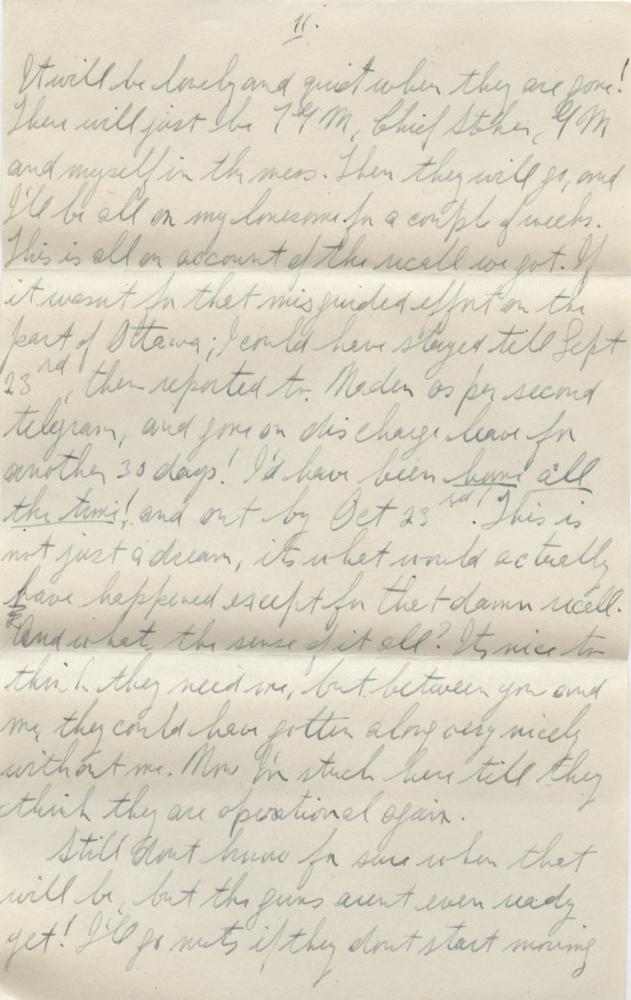 11.
It will be lovely and quiet when they are gone!
There will just be T G M, Chief Stoker, G M
and myself in the mess. Then they will go, and
I'll be all on my lonesome for a couple of weeks.
This is all on account of the recall we got. If
it wasn't for that misguided effort on the
part of Ottawa; I could have stayed till Sept
23rd, then reported to Naden as per second
telegram, and gone on discharge leave for
another 30 days! I'd have been home all
the time! and out by Oct 23rd! This is
not just a dream, its what would actually
have happened except for that damn recall.
And what, the sense of it all? It, nice to
think they need me, but between you and
me, they could have gotten along very nicely
without me. Now I'm stuck here till they
think they are operational again.
Still don't know for sure when that
will be, but the guns arent even ready
yet! I'll go nuts if they dont start moving